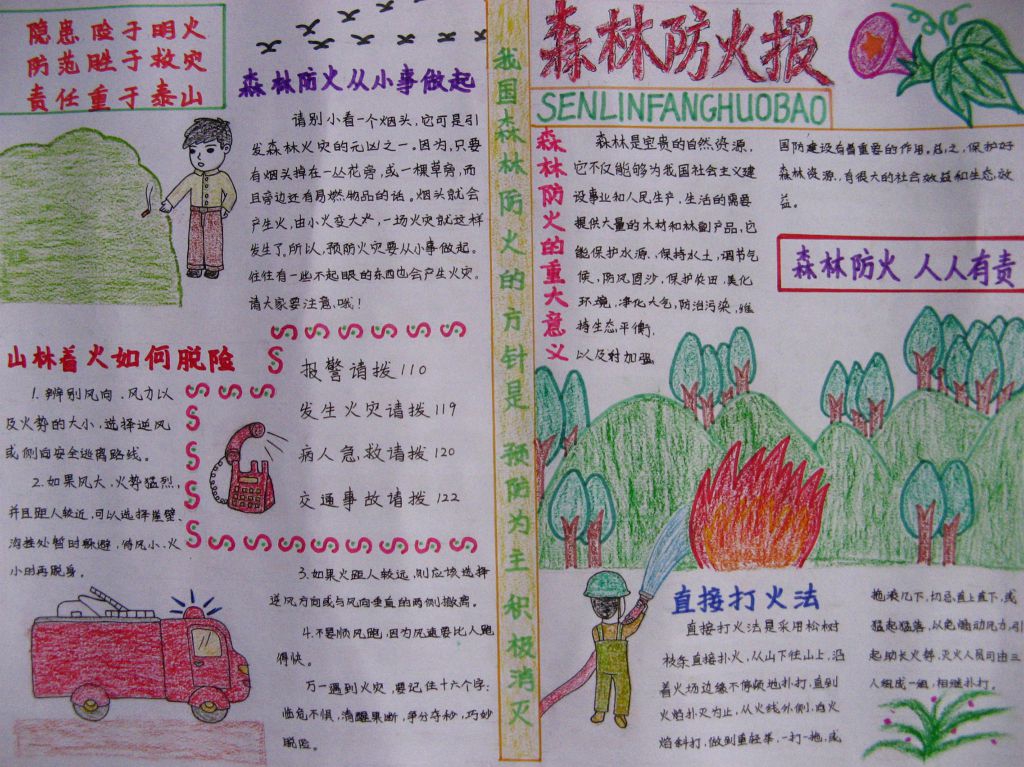 隐患险于明火
防范胜于救灾
责任重于泰山
森林防火从小事做起
请别小看一个烟头,它可是引
发森林火灾的元凶之一。因为,只要
有烟头掉在一丛花旁,或一棵草旁,而
且旁边还有易燃物品的话。烟头就会
产生火,由小火变大火,一场火灾就这样
发生了,所以,预防火灾要从小事做起。
往往有一些不起眼的东西也会产生火灾。
请大家要注意、哦!
山林着火如何脱险
1.辨别风向、风力以
及火势的大小,选择逆风
或侧向安全逃离路线。
2.如果风大、火势猛烈,
并且距人较近,可以选择崖壁、
沟洼处暂时躲避,待风小、火
小时再脱身。
报警请拨110
发生火灾请拨119
病人急,救请拨120
交通事故请拨122
3.如果火距人较远,则应该选择
逆风方向或与风向垂直的两侧撤离。
4.不要顺风跑,因为风速要比人跑
得快。
万一遇到火灾,要记住十六个字:
临危不惧,清醒果断,争分夺秒,巧妙
脱险。
我国森林防火的方针是 预防为主 积极消灭
森林防火报
SENLINFANGHUOBAO
森林防火的重大意义
森林是宝贵的自然资源,
它不仅能够为我国社会主义建
设事业和人民生产、生活的需要
提供大量的木材和林副产品,它
能保护水源、保持水土,调节气
候,防风固沙,保护农田、美化
环境,净化大气,防治污染,维
持生态平衡,
以及对加强
国防建设有着重要的作用。总之,保护好
森林资源,有很大的社会效益和生态效
益。
森林防火 人人有责
直接打火法
直接打火法是采用松树
枝条直接扑火,从山下往山上,沿
着火场边缘不停顿地扑打,直到
火焰扑灭为止,从火线外侧,向火
焰斜打,做到重轻举,一打一拖,或
拖滚几下,切忌直上直下,或
猛起猛落,以免煽动风力,引
起助长火势,灭火人员可由三
人组成一组,相继扑打。